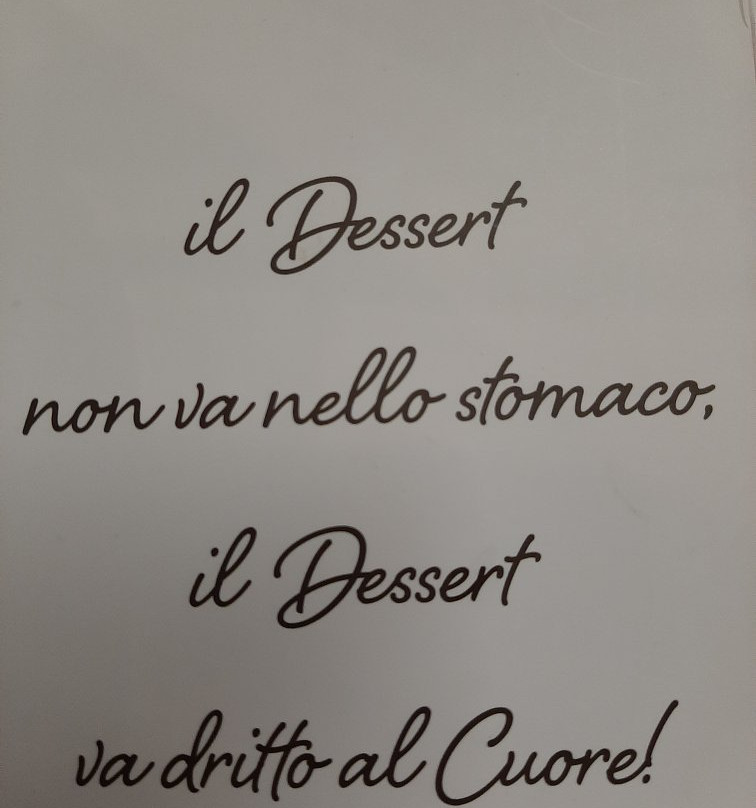 il Dessert
non va nello stomaco,
il Dessert
va dritto al Cuore!